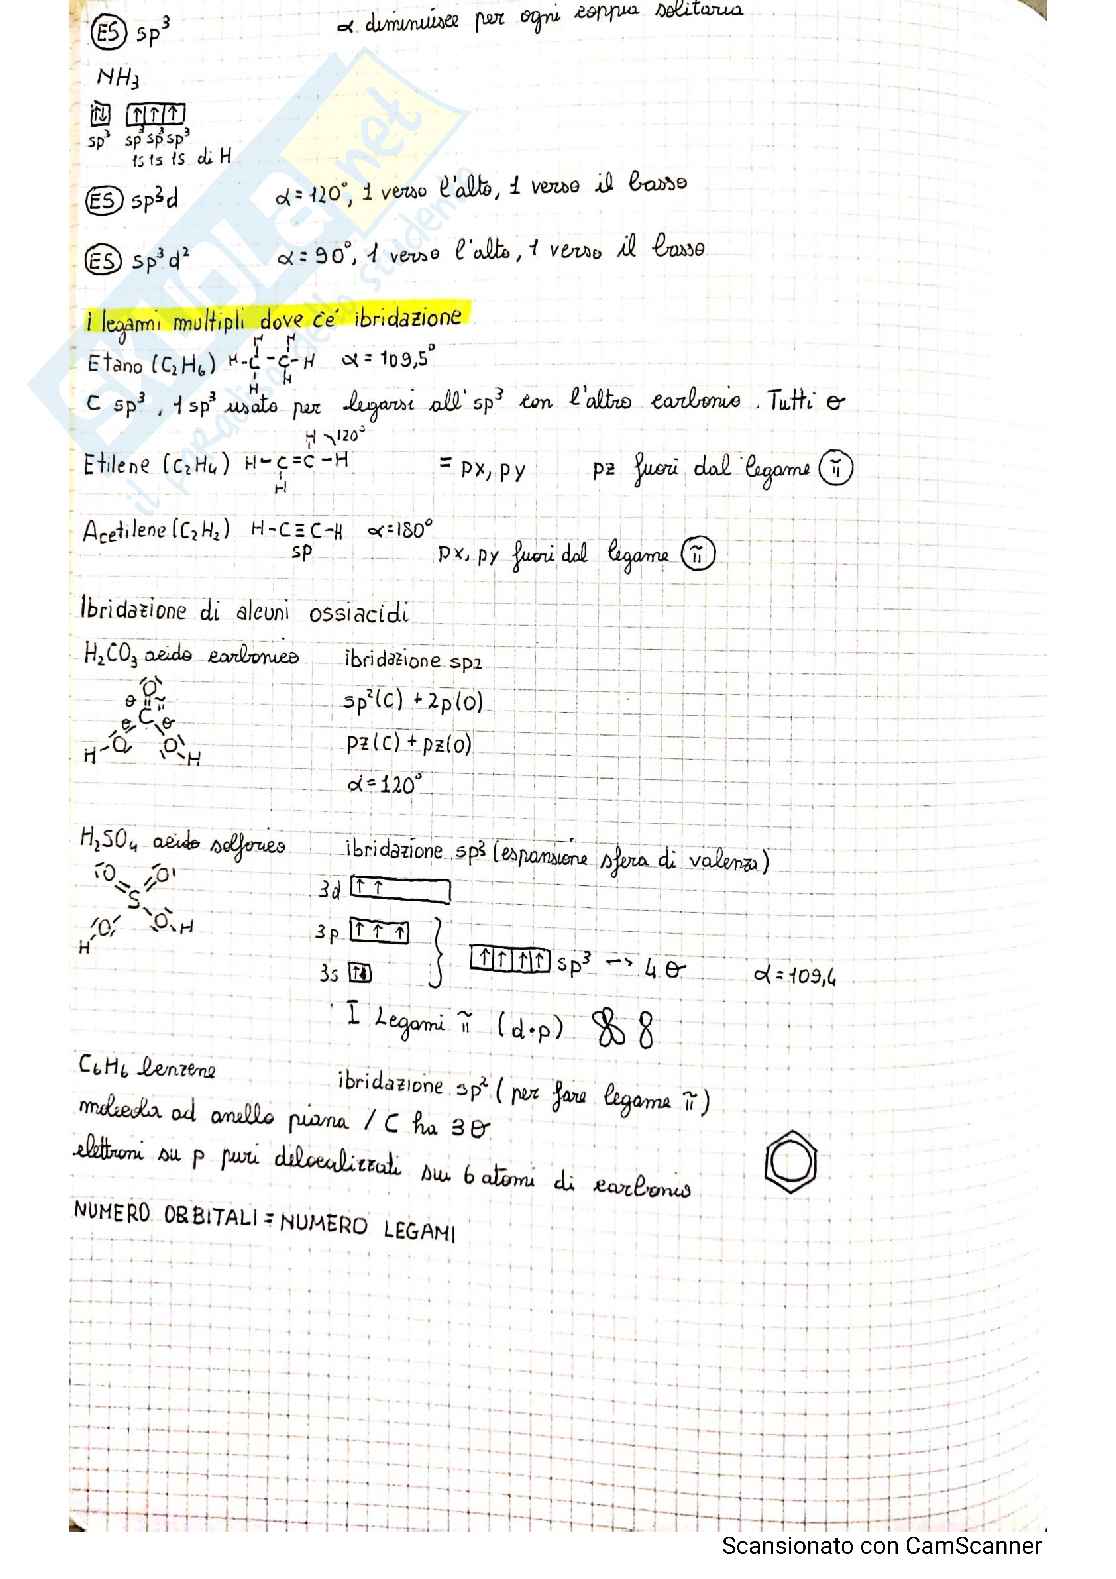 ES sp³ α diminuisce per ogni coppia solitaria
NH₃
sp³ sp³ sp³ sp³
1s 1s 1s di H
ES sp³d α = 120°, 1 verso l'alto, 1 verso il basso
ES sp³d² α = 90°, 1 verso l'alto, 1 verso il basso
i legami multipli dove c'é ibridazione
Etano (C₂H₆) H-C-C-H α = 109,5°
H H
H H
C sp³, 1 sp³ usato per legarsi all'sp³ con l'altro carbonio. Tutti σ
H 120°
Etilene (C₂H₄) H-C=C-H = px, py pz fuori dal legame π
H
Acetilene (C₂H₂) H-C≡C-H α=180°
sp px, py fuori dal legame π
Ibridazione di alcuni ossiacidi
H₂CO₃ acido carbonico ibridazione sp2
O
σ π
C
σ σ
H-O O-H
sp²(C) + 2p(O)
pz(C) + pz(O)
α = 120°
H₂SO₄ acido solforico ibridazione sp³ (espansione sfera di valenza)
O O
S
O O-H
H
3d
3p
3s sp³ --> 4 σ α = 109,4
I Legami π (d·p)
C₆H₆ benzene ibridazione sp² (per fare legame π)
molecola ad anello piana / C ha 3 σ
elettroni su p puri delocalizzati sui 6 atomi di carbonio
NUMERO ORBITALI = NUMERO LEGAMI
SKUOLA.net
il paradiso dello studente
Scansionato con CamScanner